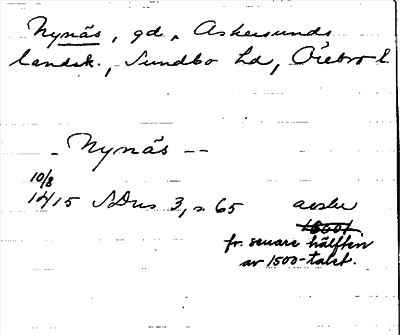 Nynäs, gd., Askersunds
landsk., Sundbo hd, Örebro l.
- Nynäs --
10/8
1415 SDns 3, s. 65 avskr
1600t
fr. senare hälften
av 1500-talet.